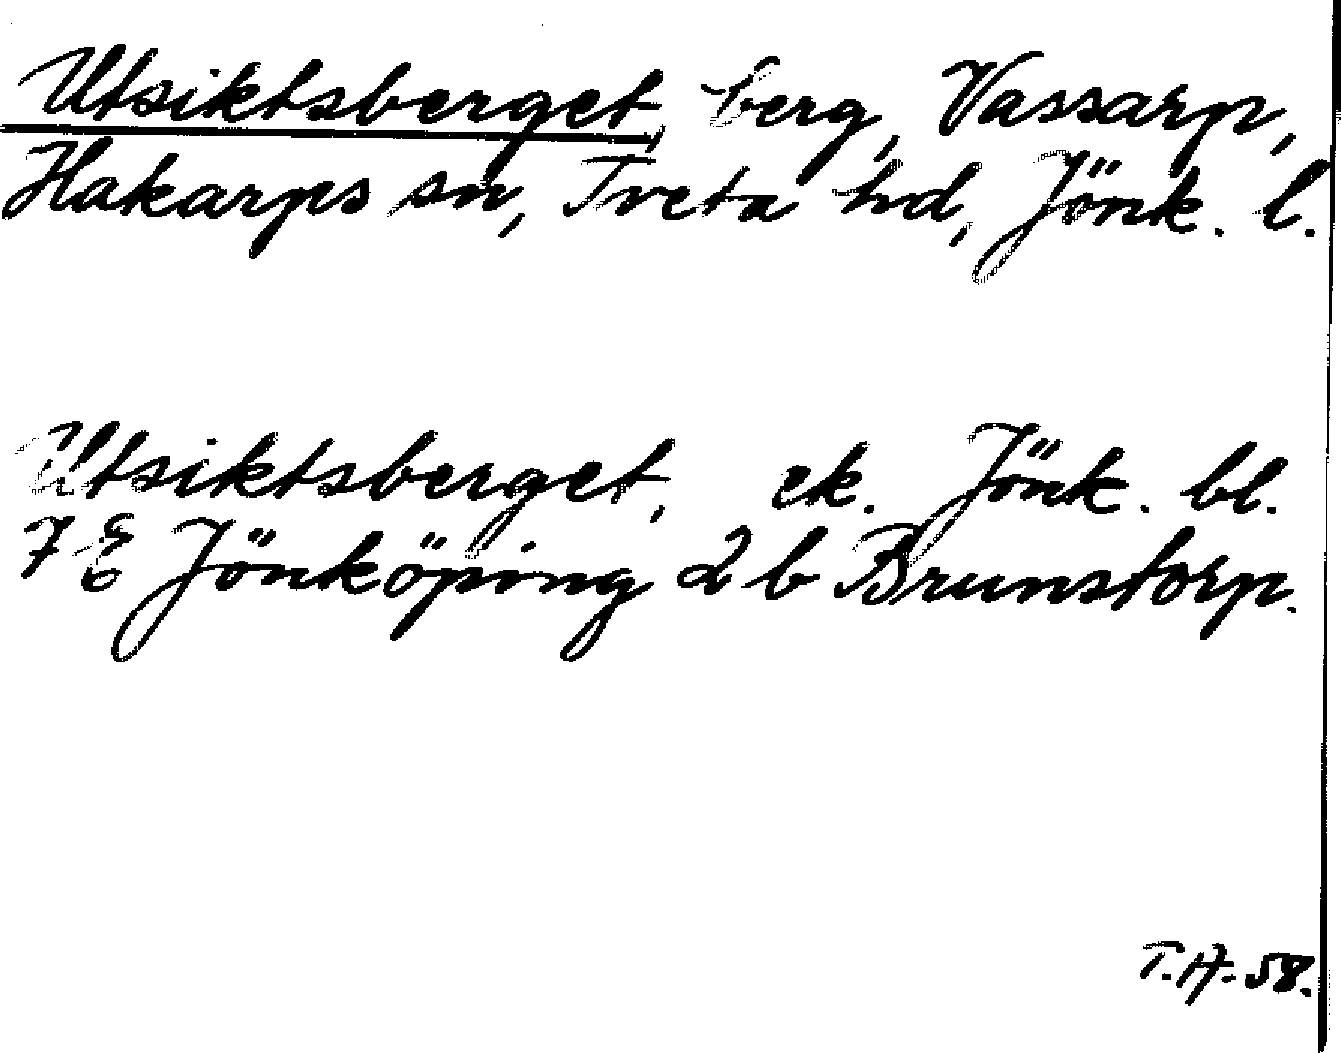 Utsiktsberget, berg, Vassarp,
Hakarps sn, Tveta hd, Jönk. l.
Utsiktsberget, ek. Jönk. bl.
7 E Jönköping 2 b Brunstorp.
T.H. 58.